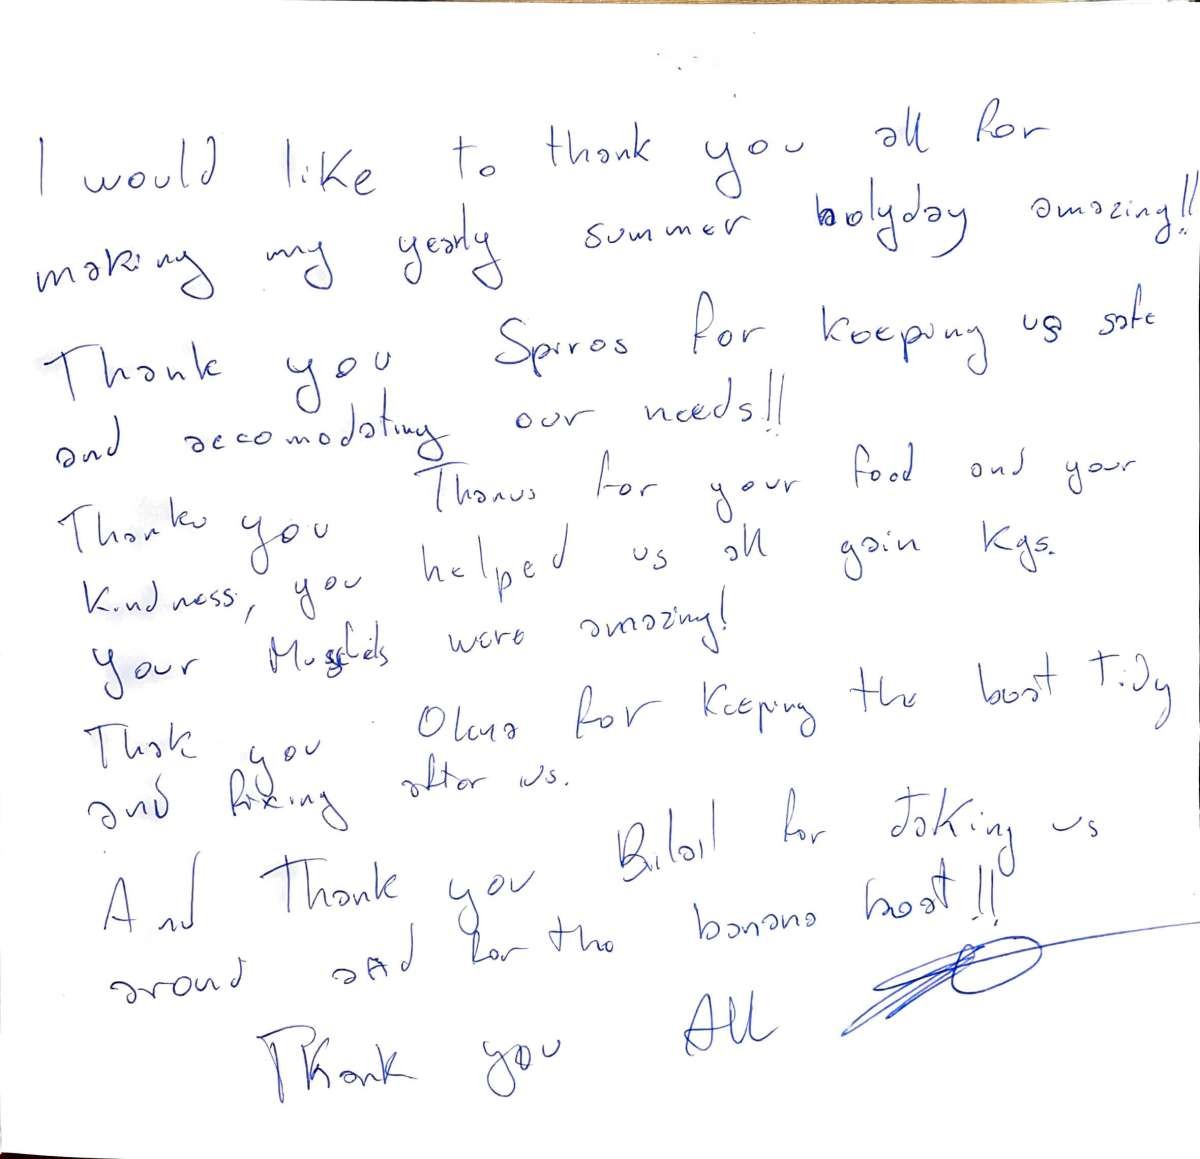 I would like to thank you all for
making my yearly summer holyday amazing!!
Thank you Spiros for keeping us safe
and accomodating our needs!!
Thank you Thanus for your food and your
Kindness, you helped us all gain Kgs.
your were amazing!
Thak you for keeping the boat tidy
and fixing after us.
And Thank you Bilail for taking us
around and for the banana boat!!
Thank you All